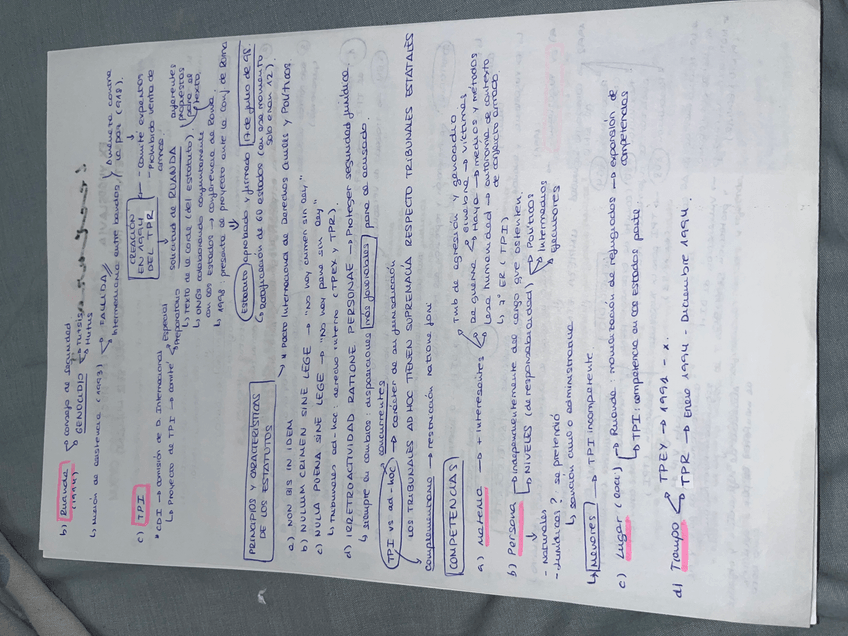 b) Ruanda → consejo de seguridad
(1994) GENOCIDIO → Tutsis
→ Hutus
↳ misión de asistencia (1993) → FALLIDA
intermediaria entre bandos / Amenaza contra la paz (918).
CREACIÓN EN 1994 DEL TPR
- comité expertos
- Prohibido venta de armas
solicitud de RUANDA
c) TPI
* CDI → comisión de D. Internacional
↳ Proyecto de TPI → comité Especial
Preparatorio
diferentes propuestas para el texto
↳ TEXTO de la CNUDI (del estatuto)
↳ ONGs colaborando conjuntamente con los estados → conferencia de Roma.
↳ 1998 presenta se proyecto ante la conf. de Roma
Estatuto (aprobado y firmado 17 de julio de 98.
↳ Ratificación de 60 estados (en ese momento solo eran 12).
PRINCIPIOS Y CARACTERÍSTICAS DE LOS ESTATUTOS
↘ * Pacto Internacional de Derechos Civiles y Políticos
a) NON BIS IN IDEM
b) NULLUM CRIMEN SINE LEGE → "No hay crimen sin ley"
c) NULLA POENA SINE LEGE → "No hay pena sin ley"
↳ Tribunales ad-hoc: derecho interno (TPEY y TPR)
d) IRRETROACTIVIDAD RATIONE PERSONAE → Proteger seguridad jurídica.
↳ siempre en cambios: disposiciones más favorables para el acusado.
TPI vs ad-hoc → concurrentes
→ carácter de su jurisdicción
LOS TRIBUNALES AD HOC TIENEN SUPREMACÍA RESPECTO TRIBUNALES ESTATALES
complementario → restricción ratione fori
COMPETENCIAS
a) Materia → + interesantes
Tmb de agresión y genocidio
De guerra → Ginebra → víctimas
→ Haya → medios y métodos
Lesa humanidad → autónoma de contexto de conflicto armado.
↳ 7º ER (TPI)
b) Persona → independientemente del cargo que ostenten
→ NIVELES (de responsabilidad) → Políticos
→ Intermedios
→ Ejecutores
- Naturales
- Jurídicas? se pretendió
↳ sanción civil o administrativa
↳ Menores → TPI incompetente
c) Lugar (loci) → Ruanda: movilización de refugiados → expansión de competencias
→ TPI: competencia en los estados parte
d) Tiempo → TPEY → 1991 - x.
→ TPR → Enero 1994 - Diciembre 1994.